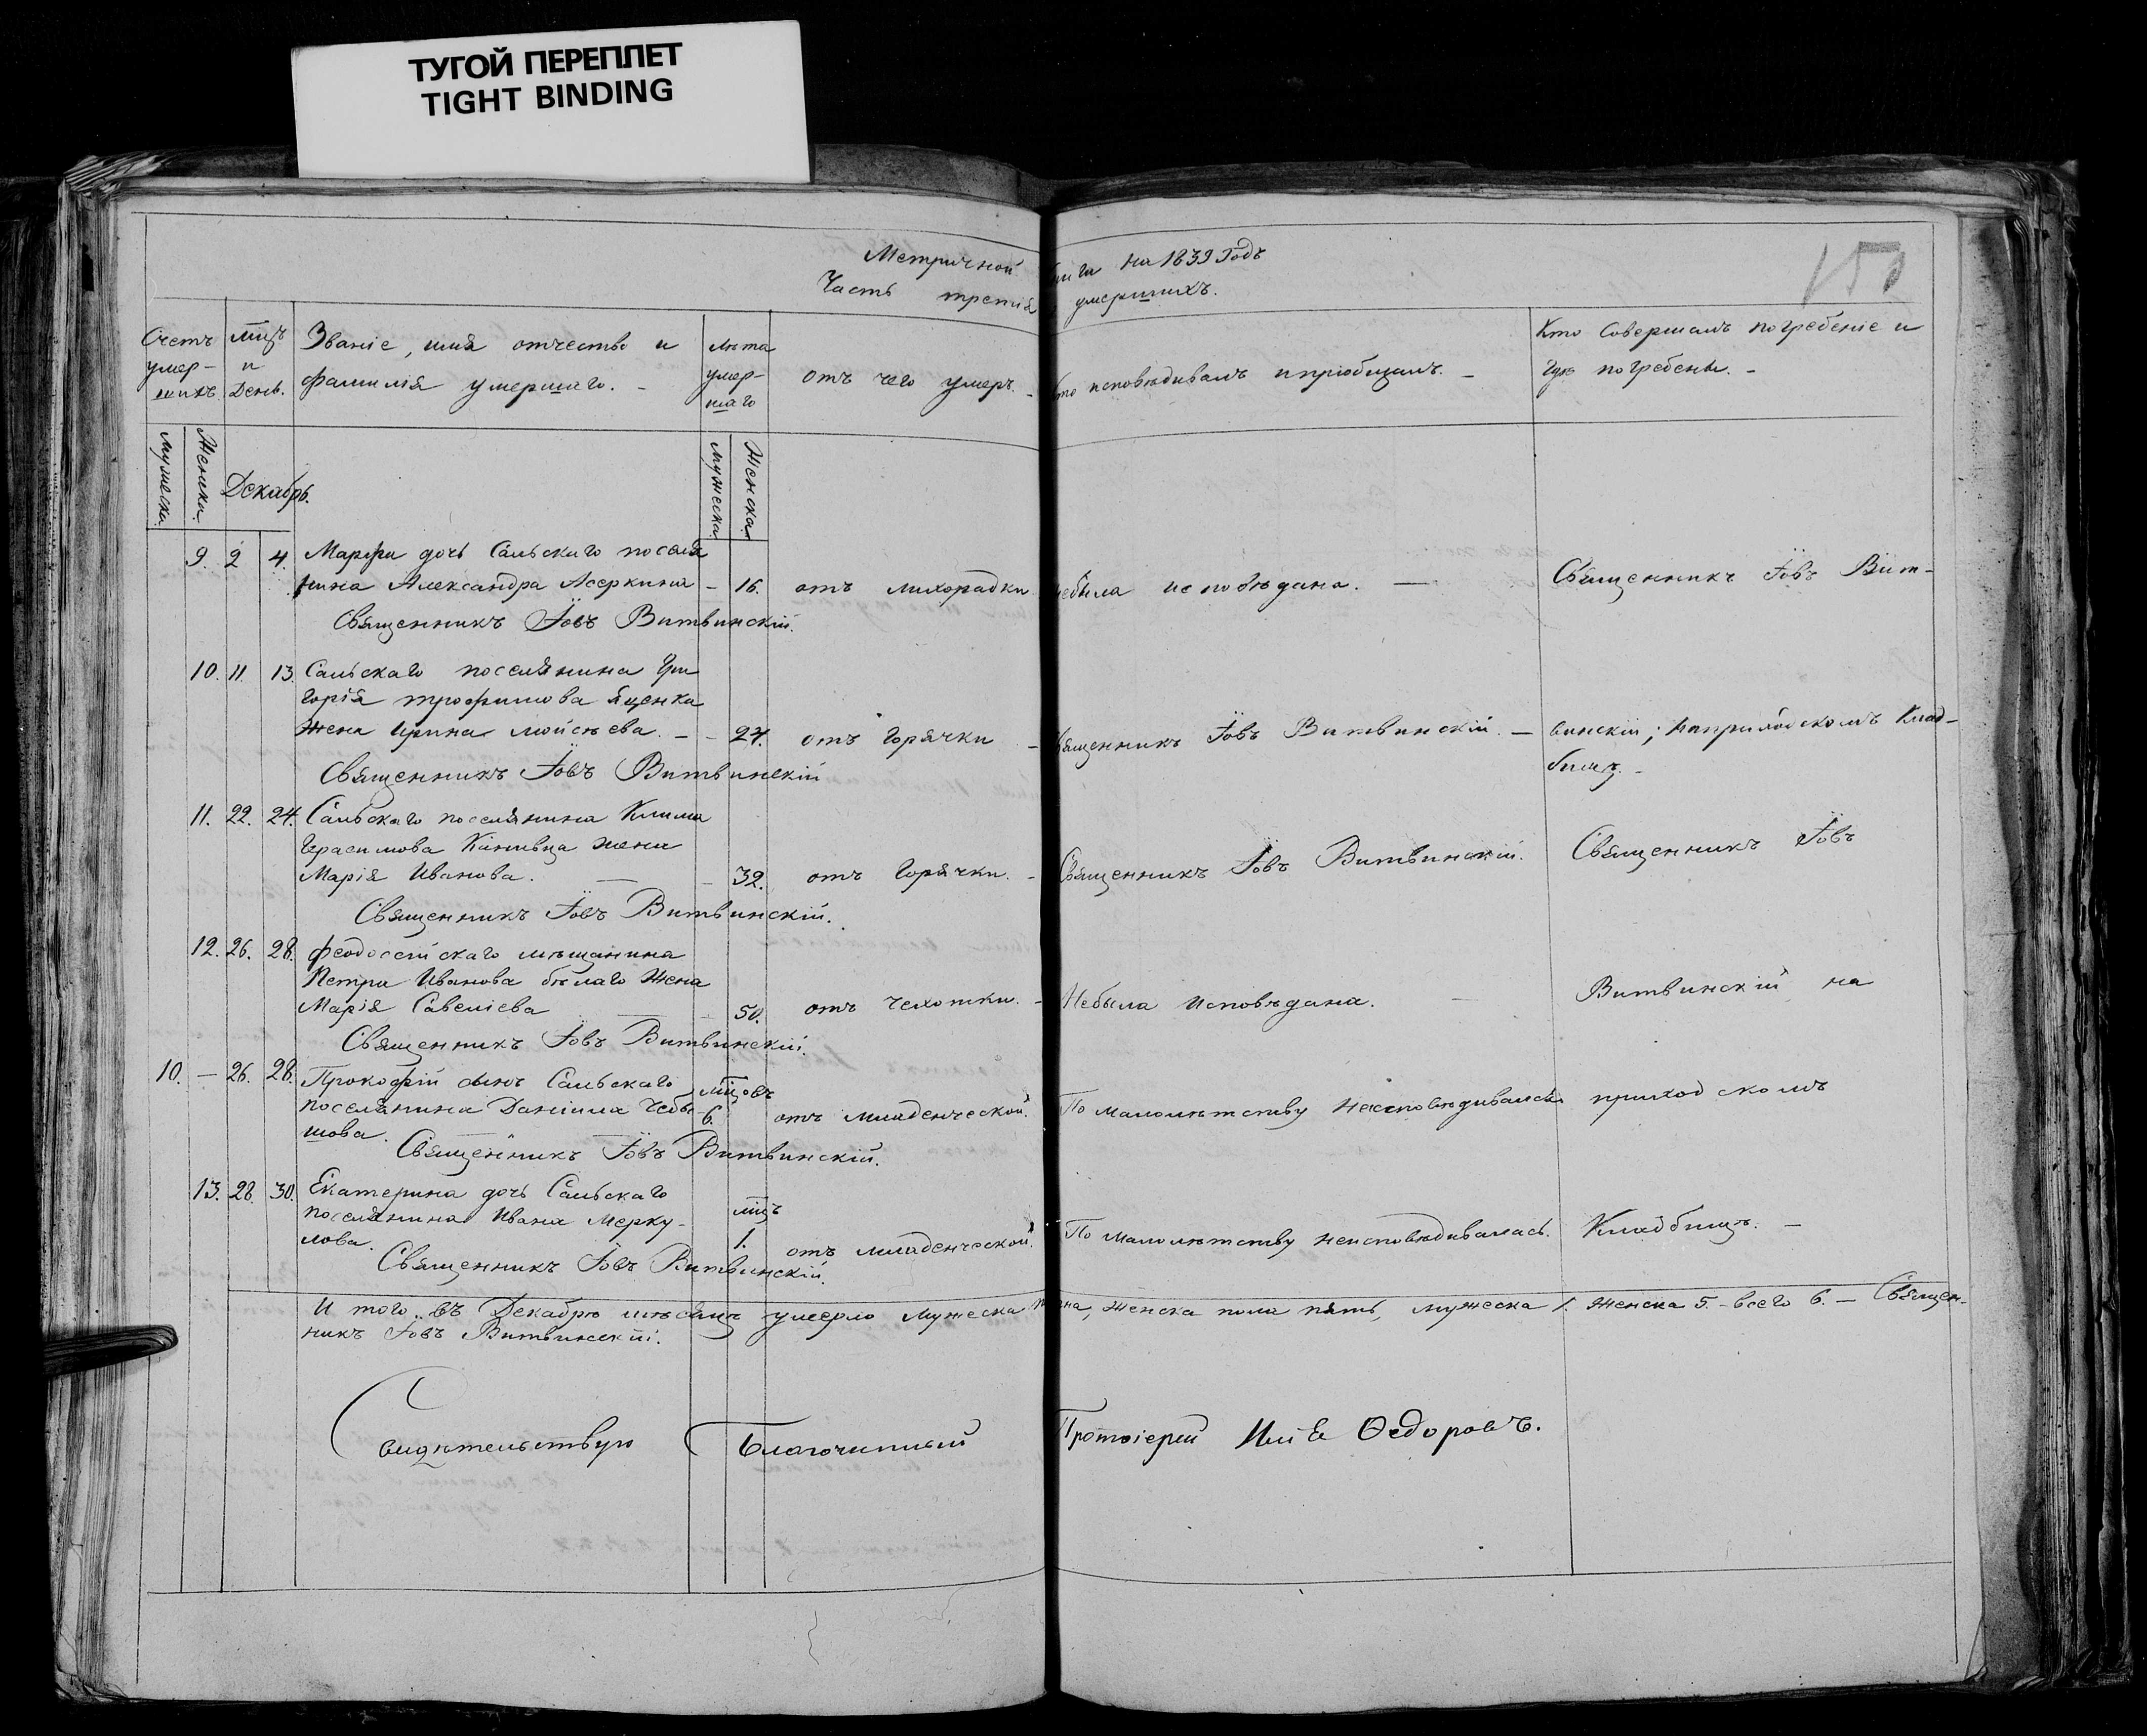 ТУГОЙ ПЕРЕПЛЕТ
TIGHT BINDING
Метричной книги на 1839 Годъ
Часть третія умершихъ.
150
Счетъ умер-шихъ
Мужеска
Женска
мцъ и День.
Декабрь.
Званіе, имя отчество и
фамилія умершаго. -
лѣта умер-шаго
Мужеска
Женска
отъ чего умеръ. -
Кто исповѣдивалъ и пріобщалъ. -
Кто Совершалъ погребеніе и
гдѣ погребены. -
9. 2 4. Марфа дочь Сальскаго поселя
нина Александра - 16. отъ лихорадки небыла исповѣдана. — Священникъ Іовъ Вит-
Священникъ Іовъ Витвинскій.
10. 11. 13. Сальскаго поселянина Гри
горія трофимова Яценка
жена Ирина мойсѣева. - - 27. отъ горячки - Священникъ Іовъ Витвинскій. - винскій; наприходскомъ Клад-
бищѣ. -
Священникъ Іовъ Витвинскій
11. 22. 24. Сальскаго поселянина Клима
Герасимова жена
Марія Иванова. — - 32. отъ Горячки. - Священникъ Іовъ Витвинскій. Священникъ Іовъ
Священникъ Іовъ Витвинскій.
12. 26. 28. феодосійскаго мѣщанина
Петра Иванова бѣлаго Жена
Марія Савеліева — - 50. отъ Чехотки. - Небыла Исповѣдана. - Витвинскій на
Священникъ Іовъ Витвинскій.
10. — 26. 28. Прокофій сынъ Сальскаго мцовъ
поселянина Даніила Чебы- 6. отъ младенческой. По малолѣтству неисповѣдивался приходскомъ
шова. — —
Священникъ Іовъ Витвинскій.
13. 28. 30. Екатерина дочь Сальскаго мцъ
поселянина Ивана Мерку- 1. отъ младенческой. По малолѣтству неисповѣдивалась. Кладбищѣ. —
лова.
Священникъ Іовъ Витвинскій.
И того въ Декабрѣ мѣсяцѣ умерло Мужеска женска пола пять, мужеска 1. Женска 5. - всего 6. — Священ-
никъ Іовъ Витвинскій.
Свидѣтельствую Благочинный Протоіерей Илія Ѳедоровъ.